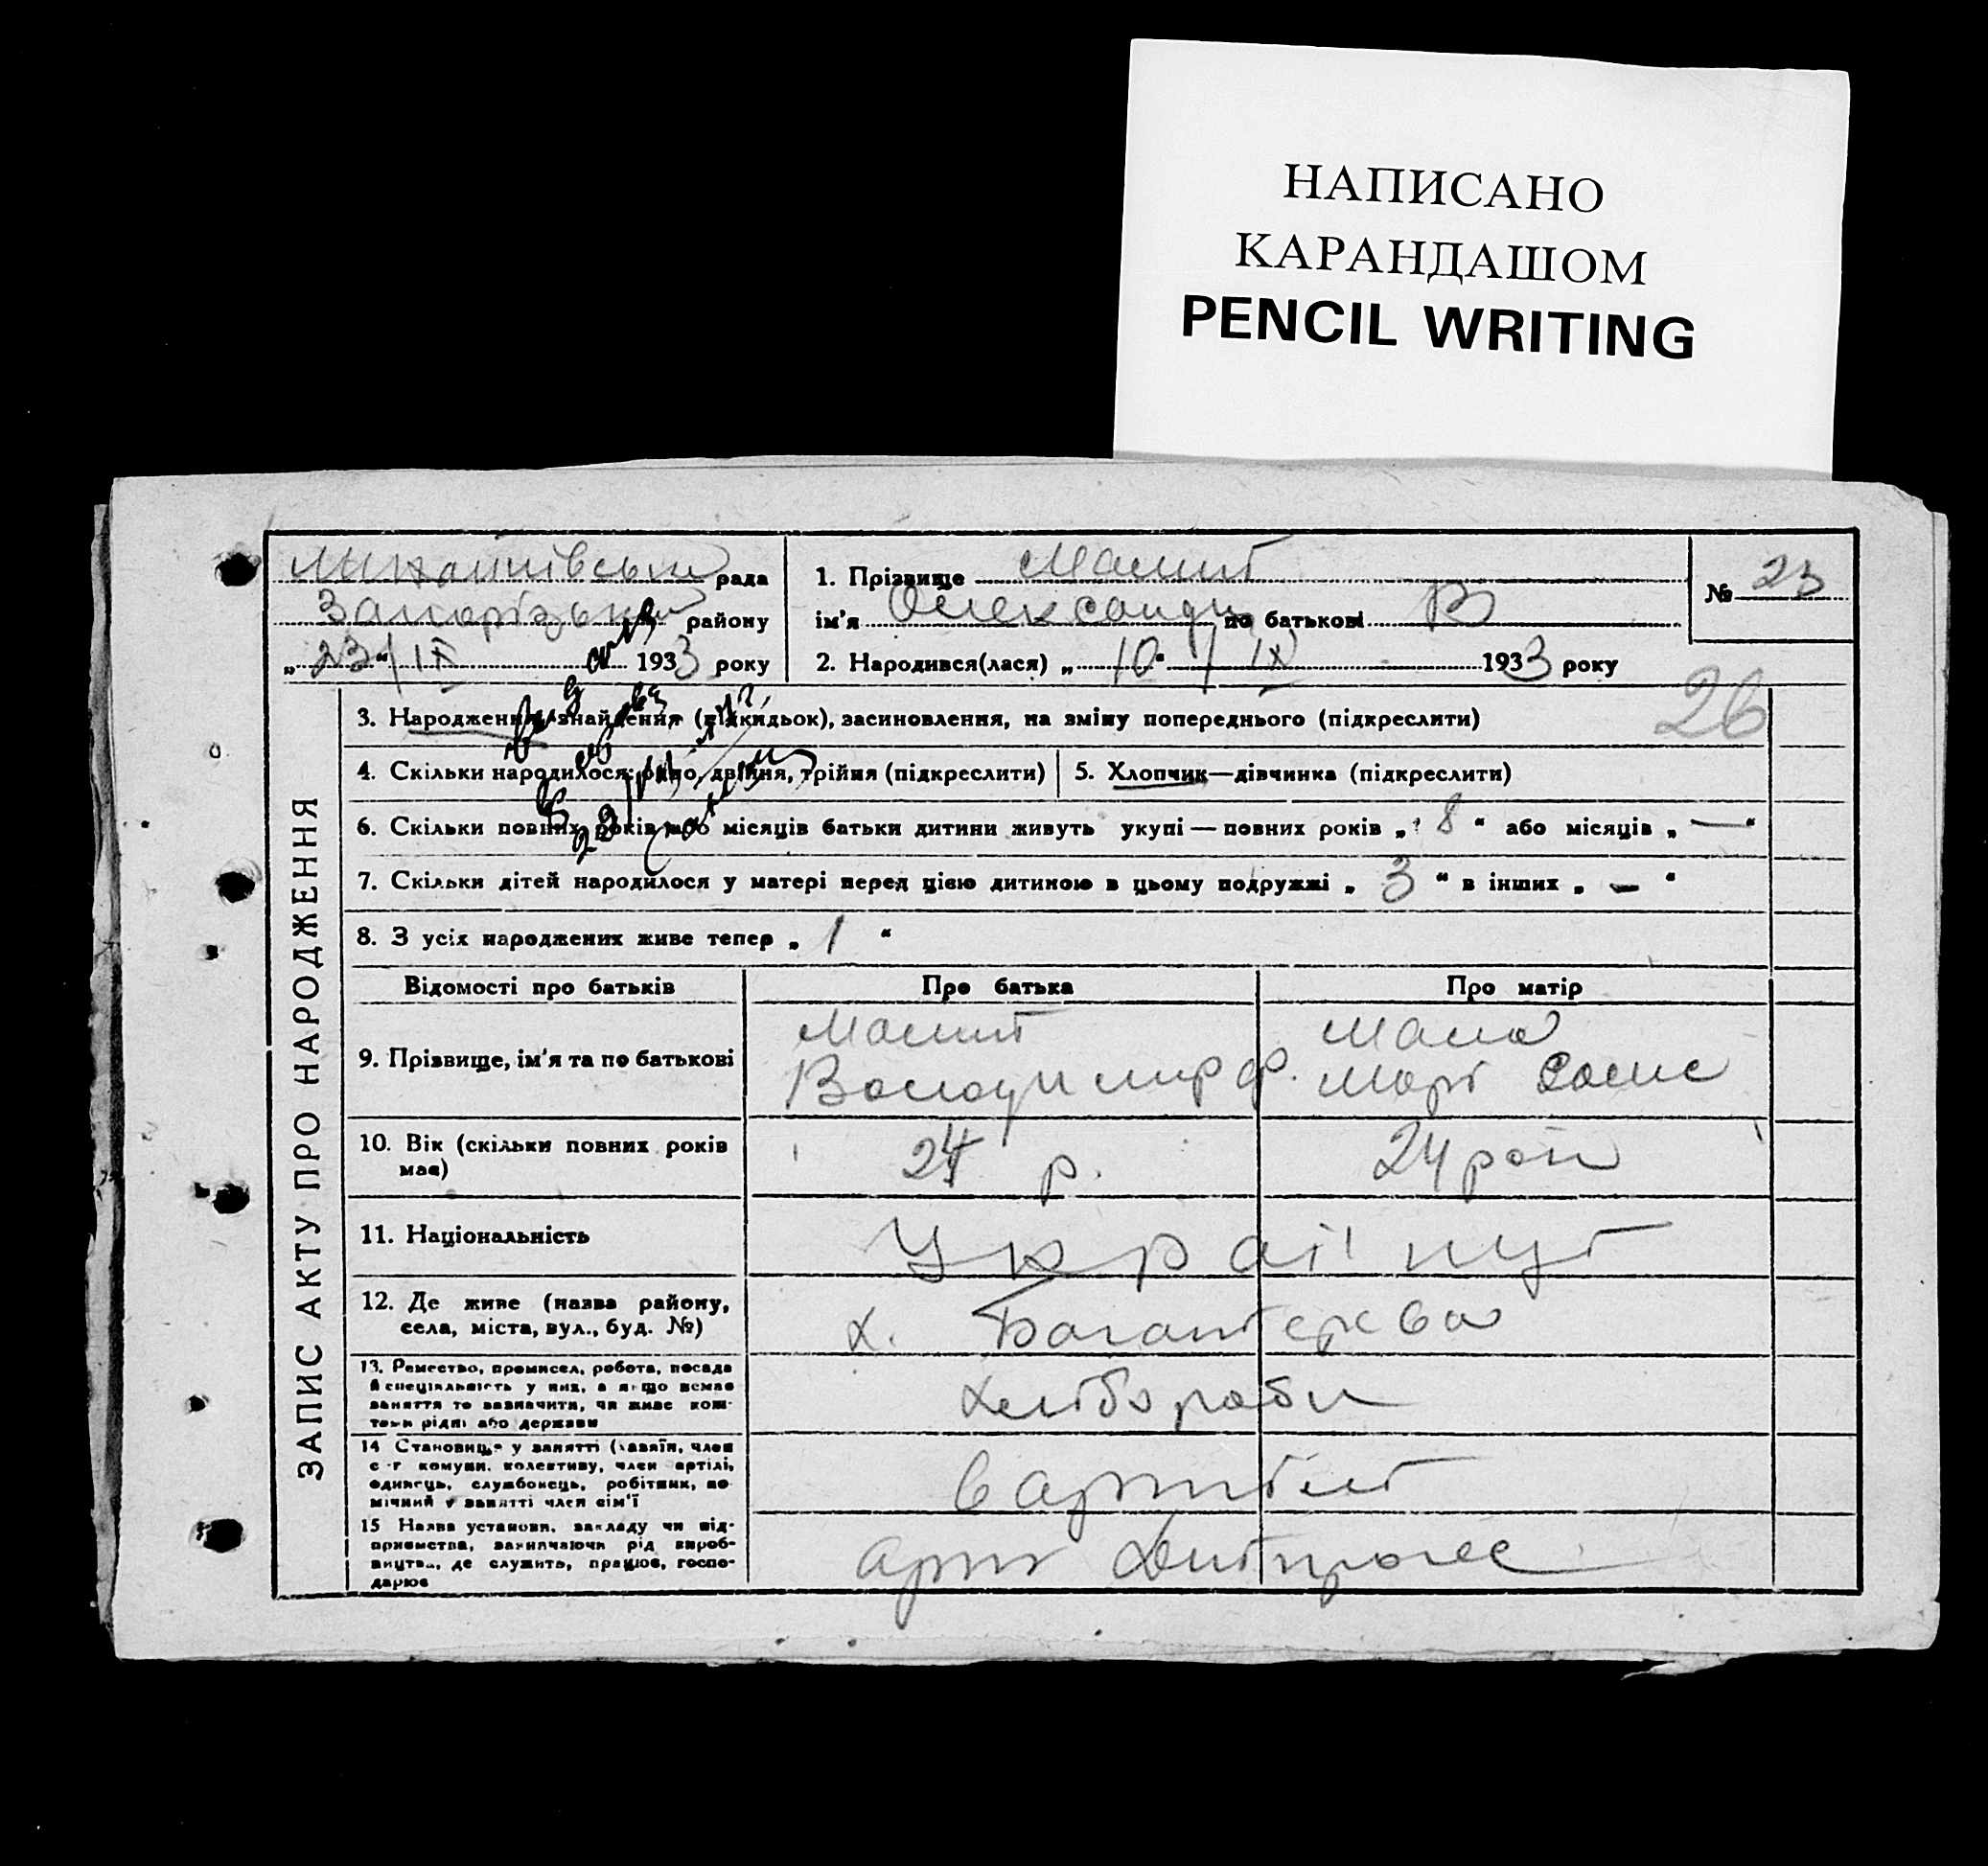 НАПИСАНО
КАРАНДАШОМ
PENCIL WRITING
ЗАПИС АКТУ ПРО НАРОДЖЕННЯ
рада
району
„23“ / IX 1933 року
1. Прізвище Малий
ім'я Олександр по батькові В
2. Народився(лася) „10“ / IX 1933 року
№ 23
26
3. Народження, знайдення (підкидьок), засиновлення, на зміну попереднього (підкреслити)
4. Скільки народилося: одно, двійня, трійня (підкреслити)
5. Хлопчик—дівчинка (підкреслити)
6. Скільки повних років або місяців батьки дитини живуть укупі — повних років „ 8 “ або місяців „ — “
7. Скільки дітей народилося у матері перед цією дитиною в цьому подружжі „ 3 “ в інших „ — “
8. З усіх народжених живе тепер „ 1 “
Відомості про батьків
Про батька
Про матір
9. Прізвище, ім'я та по батькові
Малий
Володимир Ф.
Мала
Марі
10. Вік (скільки повних років має)
24 р.
24 рок
11. Національність
Українці
12. Де живе (назва району,
села, міста, вул., буд. №)
х.
13. Ремество, промисел, робота, посада
й спеціяльність у них, а якщо немає
заняття то зазначити, чи живе кош-
тами рідні або держави
Хлібороби
14 Становище у занятті (хазяїн, член
с-г комуни, колективу, член артілі,
одинець, службовець, робітник, по-
мічний у занятті член сім'ї
в артілі
15 Назва установи, закладу чи під-
приємства, зазначаючи рід вироб-
ництва, де служить, працює, госпо-
дарює
арт